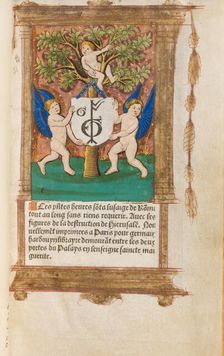 Les p̄ñtes heures sõt a lusaige de Rõme
tout au long sans riens requerir. Auec les
figures de la destruction de Hierusalē. Nou
uellemēt imprimees a Paris pour germain
hardouyn libraire demourāt entre les deux
portes du Palays en lenseigne saincte mar
guerite.